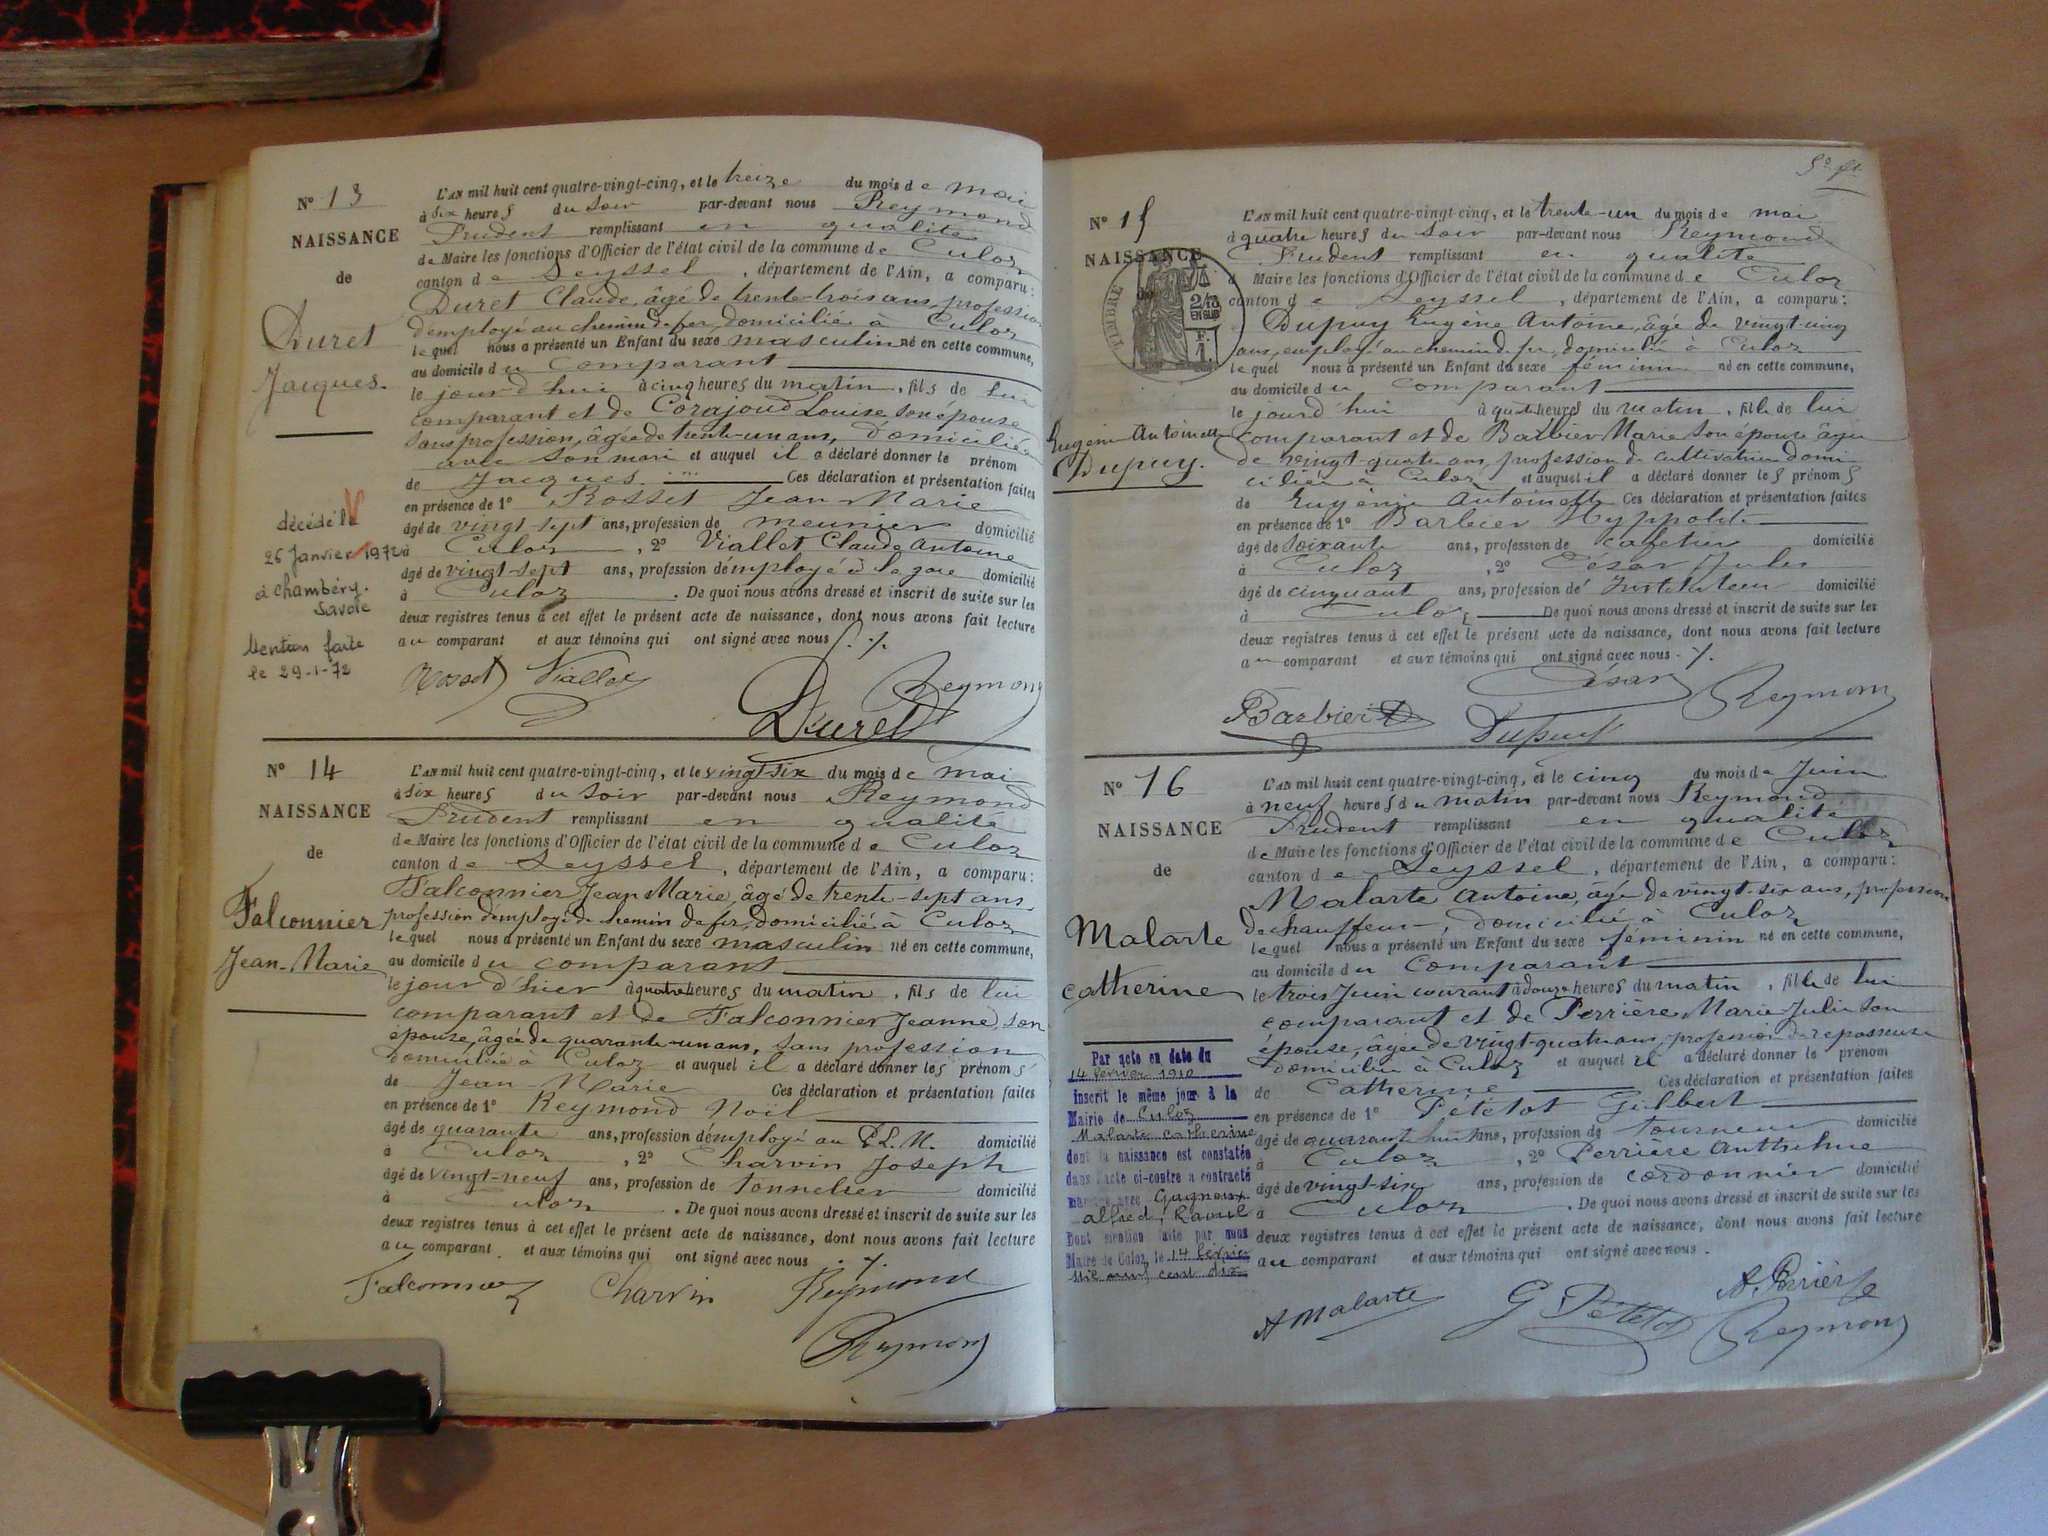 N° 13
NAISSANCE
de
Duret
Jacques.
décédé le
26 Janvier 1972
à Chambéry.
Savoie
Mention faite
le 29-1-72
L'AN mil huit cent quatre-vingt-cinq, et le treize du mois de mai
à six heures du soir par-devant nous Reymond
Prudent remplissant en qualité
de Maire les fonctions d'Officier de l'état civil de la commune de Culoz
canton de Seyssel, département de l'Ain, a comparu:
Duret Claude, âgé de trente-trois ans, profession
d'employé au chemin de fer, domicilié à Culoz
lequel nous a présenté un Enfant du sexe masculin né en cette commune,
au domicile du comparant
le jourd'hui à cinq heures du matin, fils de lui
comparant et de Corajoud Louise son épouse
sans profession, âgée de trente-un ans, domiciliée
avec son mari et auquel il a déclaré donner le prénom
de Jacques. Ces déclaration et présentation faites
en présence de 1° Rosset Jean Marie
âgé de vingt-sept ans, profession de meunier domicilié
à Culoz, 2° Viallet Claude Antoine
âgé de vingt-sept ans, profession d'employé à la gare domicilié
à Culoz. De quoi nous avons dressé et inscrit de suite sur les
deux registres tenus à cet effet le présent acte de naissance, dont nous avons fait lecture
au comparant et aux témoins qui ont signé avec nous ./.
Rosset Viallet Reymond
Duret
N° 14
NAISSANCE
de
Falconnier
Jean-Marie
L'AN mil huit cent quatre-vingt-cinq, et le vingt-six du mois de mai
à six heures du soir par-devant nous Reymond
Prudent remplissant en qualité
de Maire les fonctions d'Officier de l'état civil de la commune de Culoz
canton de Seyssel, département de l'Ain, a comparu:
Falconnier Jean Marie, âgé de trente-sept ans
profession d'employé de chemin de fer, domicilié à Culoz
lequel nous a présenté un Enfant du sexe masculin né en cette commune,
au domicile du comparant
le jour d'hier à quatre heures du matin, fils de lui
comparant et de Falconnier Jeanne, son
épouse, âgée de quarante-un ans, sans profession
domiciliée à Culoz et auquel il a déclaré donner les prénoms
de Jean-Marie Ces déclaration et présentation faites
en présence de 1° Reymond Noël
âgé de quarante ans, profession d'employé au P.L.M. domicilié
à Culoz, 2° Charvin Joseph
âgé de vingt-neuf ans, profession de tonnelier domicilié
à Culoz. De quoi nous avons dressé et inscrit de suite sur les
deux registres tenus à cet effet le présent acte de naissance, dont nous avons fait lecture
au comparant et aux témoins qui ont signé avec nous ./.
Falconnier Charvin Reymond
Reymond
N° 15
NAISSANCE
TIMBRE
2/10
EN SUS
Eugénie Antoinette
Dupuy.
L'AN mil huit cent quatre-vingt-cinq, et le trente-un du mois de mai
à quatre heures du soir par-devant nous Reymond
Prudent remplissant en qualité
d Maire les fonctions d'Officier de l'état civil de la commune de Culoz
canton de Seyssel, département de l'Ain, a comparu:
Dupuy Eugène Antoine, âgé de vingt-cinq
ans, employé au chemin de fer, domicilié à Culoz
lequel nous a présenté un Enfant du sexe féminin né en cette commune,
au domicile du comparant
le jourd'hui à quatre heures du matin, fille de lui
comparant et de Barbier Marie son épouse âgée
de vingt-quatre ans, profession de cultivatrice domi-
ciliée à Culoz et auquel il a déclaré donner les prénoms
de Eugénie Antoinette Ces déclaration et présentation faites
en présence de 1° Barbier Hyppolite
âgé de soixante ans, profession de cafetier domicilié
à Culoz, 2° César Jules
âgé de cinquante ans, profession d' Instituteur domicilié
à Culoz De quoi nous avons dressé et inscrit de suite sur les
deux registres tenus à cet effet le présent acte de naissance, dont nous avons fait lecture
au comparant et aux témoins qui ont signé avec nous ./.
César Reymond
Barbier Dupuy
N° 16
NAISSANCE
de
Malarte
Catherine
Par acte en date du
14 février 1910
inscrit le même jour à la
Mairie de Culoz
Malarte Catherine
dont la naissance est constatée
dans l'acte ci-contre a contracté
mariage avec Gagnoux
Alfred, Raoul
Dont mention faite par nous
Maire de Culoz, le 14 février
mil neuf cent dix
L'AN mil huit cent quatre-vingt-cinq, et le cinq du mois de Juin
à neuf heures du matin par-devant nous Reymond
Prudent remplissant en qualité
de Maire les fonctions d'Officier de l'état civil de la commune de Culoz
canton de Seyssel, département de l'Ain, a comparu:
Malarte Antoine, âgé de vingt-six ans, profession
de chauffeur, domicilié à Culoz
lequel nous a présenté un Enfant du sexe féminin né en cette commune,
au domicile du comparant
le trois Juin courant à douze heures du matin, fille de lui
comparant et de Perrière Marie Julie son
épouse, âgée de vingt-quatre ans, profession de repasseuse
domiciliée à Culoz et auquel il a déclaré donner le prénom
de Catherine Ces déclaration et présentation faites
en présence de 1° Pételot Gilbert
âgé de quarante huit ans, profession de tourneur domicilié
à Culoz, 2° Perrière Anthelme
âgé de vingt-six ans, profession de cordonnier domicilié
à Culoz. De quoi nous avons dressé et inscrit de suite sur les
deux registres tenus à cet effet le présent acte de naissance, dont nous avons fait lecture
au comparant et aux témoins qui ont signé avec nous.
A Malarte G Pételot A. Perrière
Reymond